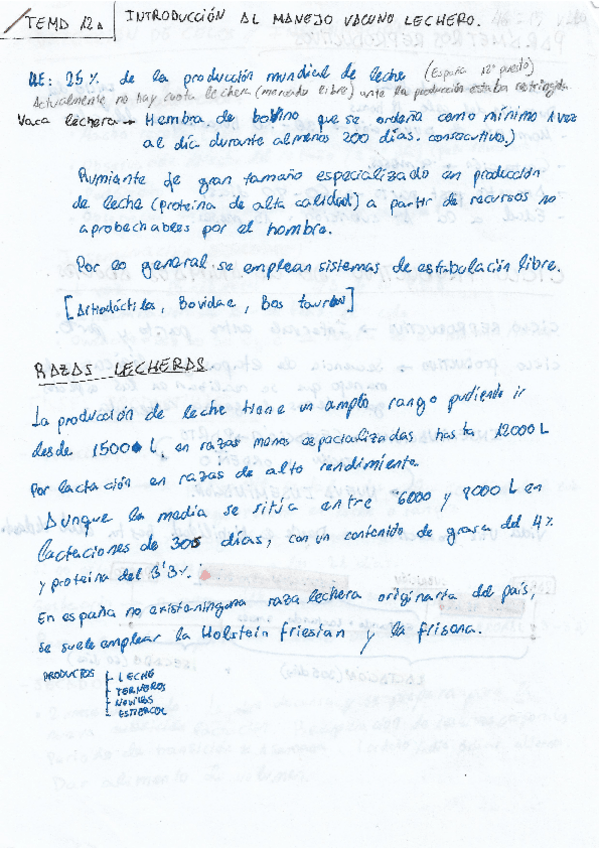 TEMA 12. INTRODUCCIÓN AL MANEJO VACUNO LECHERO.
UE: 25% de la producción mundial de leche (España 12º puesto)
Actualmente no hay cuota lechera (mercado libre) ante la producción estaba restringida.
Vaca lechera → Hembra de bovino que se ordeña como mínimo 1 vez
al día durante al menos 200 días. consecutivos.)
Rumiante de gran tamaño especializado en producción
de leche (proteina de alta calidad) a partir de recursos no
aprobechables por el hombre.
Por lo general se emplean sistemas de estabulación libre.
[Artiodáctilos, Bovidae, Bos taurus]
RAZAS LECHERAS
La producción de leche tiene un amplio rango pudiendo ir
desde 1500 L, en razas menos especializadas hasta 12000 L
Por lactación en razas de alto rendimiento.
Aunque la media se sitúa entre 6000 y 9000 L en
lactaciones de 305 días, con un contenido de grasa del 4%
y proteina del 3'3%.
En españa no existe ninguna raza lechera originaria del país,
se suele emplear la Holstein friesian y la frisona.
PRODUCTOS
- LECHE
- TERNEROS
- NOVILLOS
- ESTIERCOL